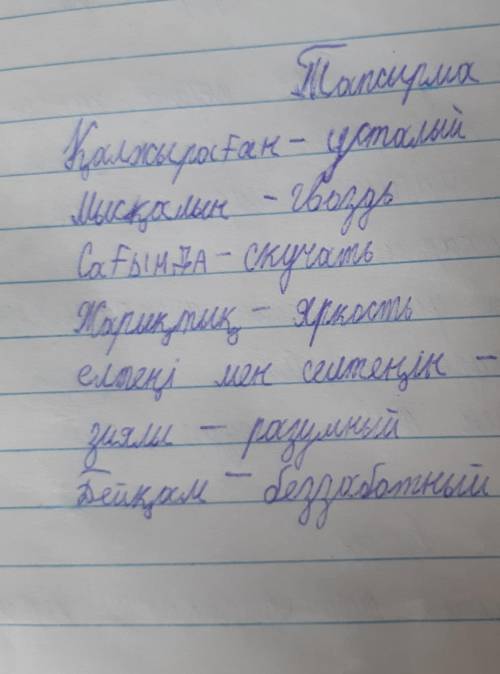 Тапсирма
Қалжыраған - усталый
Мысқалын - гвоздь
Сағында - скучать
Жариқтик - яркость
елтеңі мен селтеңін -
зияли - разумный
Бейқам - беззаботный